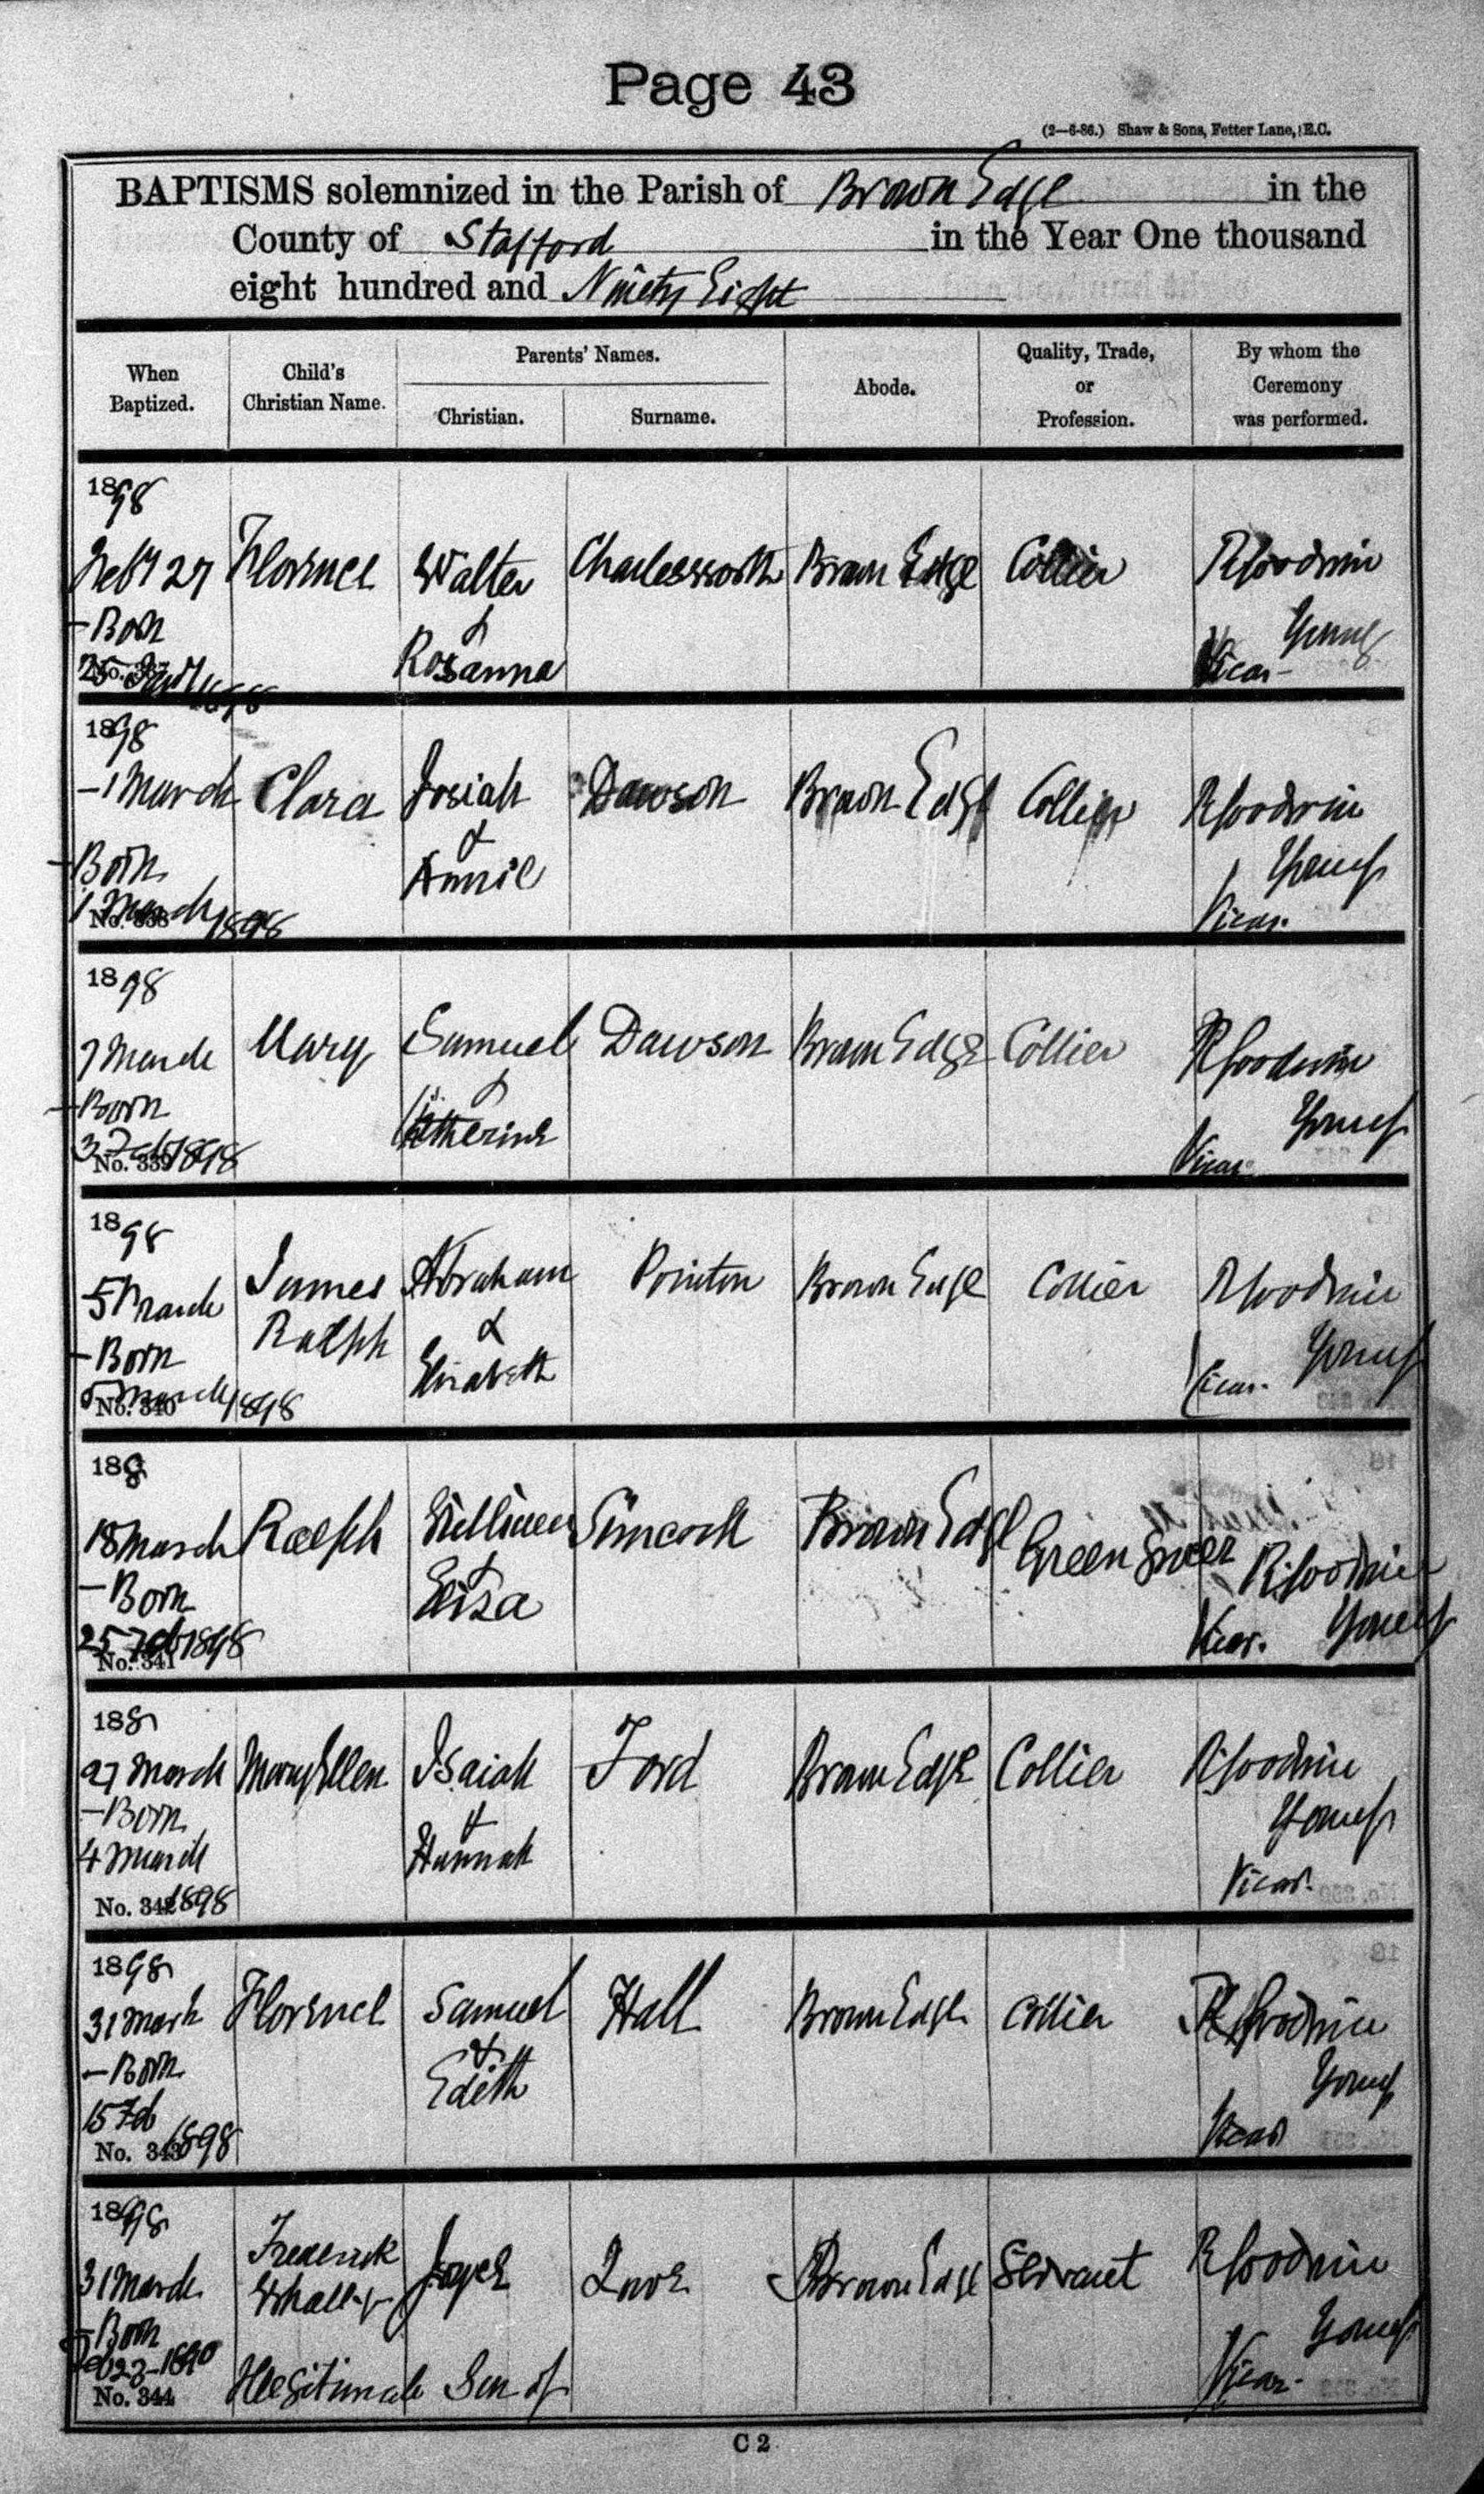 Page 43
(2—6-86.) Shaw & Sons, Fetter Lane, E.C.
BAPTISMS solemnized in the Parish of Brown Edge in the
County of Stafford in the Year One thousand
eight hundred and Ninety Eight
When Baptized.
Child's Christian Name.
Parents' Names.
Christian.
Surname.
Abode.
Quality, Trade, or Profession.
By whom the Ceremony was performed.
1898
Feby 27 Florence Walter Charlesworth Brown Edge Collier R Goodwin
– Born & Young
25 1898 Rosanna Vicar
No. 337
1898
– 1 March Clara Josiah Dawson Brown Edge Collier R Goodwin
– Born & Young
1 March 1898 Annie Vicar.
No. 338
1898
7 March Mary Samuel Dawson Brown Edge Collier R Goodwin
– Born & Young
3 Feb 1898 Catherine Vicar
No. 339
1898
5 March James Abraham Pointon Brown Edge Collier R Goodwin
– Born Ralph & Young
March 1898 Elizabeth Vicar.
No. 340
189
18 March Ralph William Simcock Brown Edge Green Grocer R Goodwin
– Born & Young
25 Feb 1898 Eliza Vicar.
No. 341
189
27 March Mary Ellen Isaiah Ford Brown Edge Collier R Goodwin
– Born & Young
4 March Hannah Vicar.
No. 342 1898
1898
31 March Florence Samuel Hall Brown Edge Collier R Goodwin
– Born & Young
15 Feb Edith Vicar
No. 343 1898
1898
31 March Frederick Joyce Brown Edge Servant R Goodwin
– Born Whalley Young
Feb 23 – Illegitimate Son of Vicar
No. 344
C 2